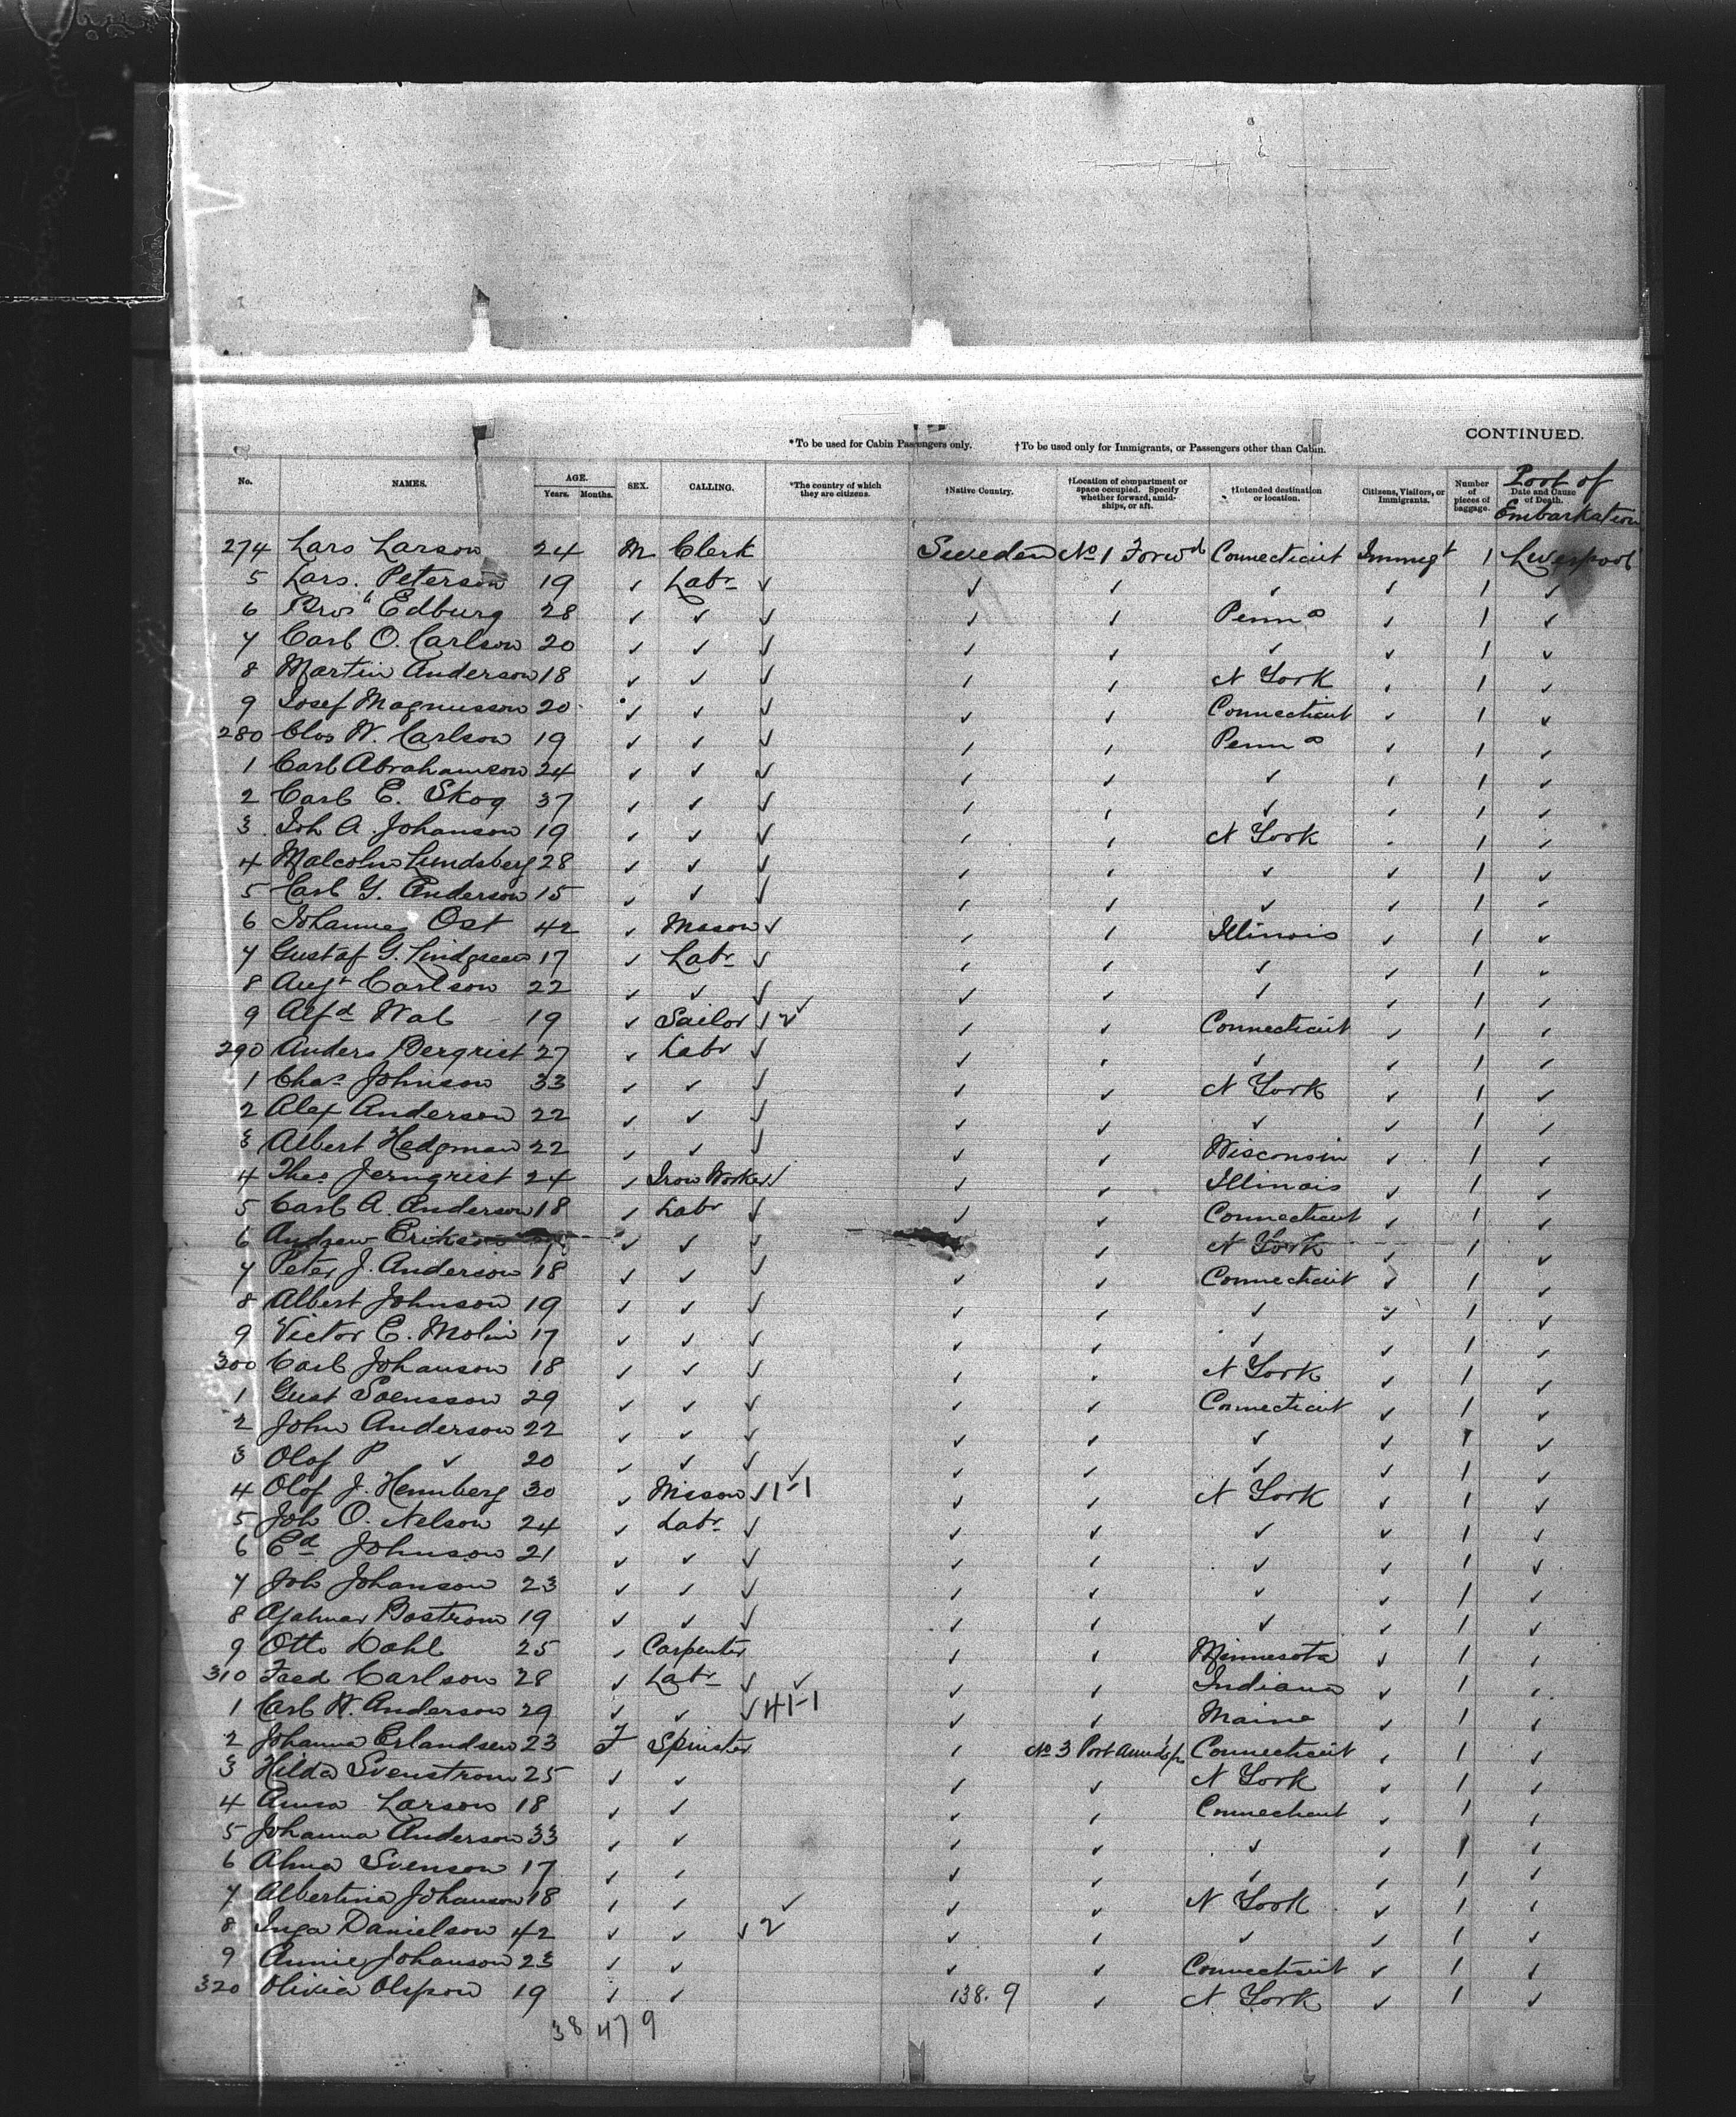 CONTINUED.
*To be used for Cabin Passengers only. †To be used only for Immigrants, or Passengers other than Cabin.
No. NAMES. AGE. Years. Months. SEX. CALLING. *The country of which they are citizens. †Native Country. †Location of compartment or space occupied. Specify whether forward, amidships, or aft. †Intended destination or location. Citizens, Visitors, or Immigrants. Number of pieces of baggage. Date and Cause of Death. Port of Embarkation
274 Lars Larson 24 M Clerk Sweden No 1 Forwd Connecticut Immigt 1 Liverpool
5 Lars. Peterson 19 ✓ Labr ✓ ✓ ✓ ✓ ✓ 1 ✓
6 Edburg 28 ✓ ✓ ✓ ✓ ✓ Penna ✓ 1 ✓
7 Carl O. Carlson 20 ✓ ✓ ✓ ✓ ✓ ✓ ✓ 1 ✓
8 Martin Anderson 18 ✓ ✓ ✓ ✓ ✓ N York ✓ 1 ✓
9 Josef Magnusson 20 ✓ ✓ ✓ ✓ ✓ Connecticut ✓ 1 ✓
280 W. Carlson 19 ✓ ✓ ✓ ✓ ✓ Penna ✓ 1 ✓
1 Carl Abrahamson 24 ✓ ✓ ✓ ✓ ✓ ✓ ✓ 1 ✓
2 Carl E. Skog 37 ✓ ✓ ✓ ✓ ✓ ✓ ✓ 1 ✓
3 Joh A. Johanson 19 ✓ ✓ ✓ ✓ ✓ N York ✓ 1 ✓
4 Malcolm Lundsberg 28 ✓ ✓ ✓ ✓ ✓ ✓ ✓ 1 ✓
5 Carl G. Anderson 15 ✓ ✓ ✓ ✓ ✓ ✓ ✓ 1 ✓
6 Johannes Ost 42 ✓ Mason ✓ ✓ ✓ Illinois ✓ 1 ✓
7 Gustaf G. Lindgreen 17 ✓ Labr ✓ ✓ ✓ ✓ ✓ 1 ✓
8 Augt Carlson 22 ✓ ✓ ✓ ✓ ✓ ✓ ✓ 1 ✓
9 Alfd Wal 19 ✓ Sailor ✓ 2 ✓ ✓ ✓ Connecticut ✓ 1 ✓
290 Anders Bergrist 27 ✓ Labr ✓ ✓ ✓ ✓ ✓ 1 ✓
1 Chas Johnson 33 ✓ ✓ ✓ ✓ ✓ N York ✓ 1 ✓
2 Alex Anderson 22 ✓ ✓ ✓ ✓ ✓ ✓ ✓ 1 ✓
3 Albert Hedgman 22 ✓ ✓ ✓ ✓ ✓ Wisconsin ✓ 1 ✓
4 Theo Jernqrist 24 ✓ Iron Worker ✓ ✓ ✓ Illinois ✓ 1 ✓
5 Carl A. Anderson 18 ✓ Labr ✓ ✓ ✓ Connecticut ✓ 1 ✓
6 Andrew Erikson ✓ ✓ ✓ ✓ N York ✓ 1 ✓
7 Peter J. Anderson 18 ✓ ✓ ✓ ✓ ✓ Connecticut ✓ 1 ✓
8 Albert Johnson 19 ✓ ✓ ✓ ✓ ✓ ✓ ✓ 1 ✓
9 Victor E. Molin 17 ✓ ✓ ✓ ✓ ✓ ✓ ✓ 1 ✓
300 Carl Johanson 18 ✓ ✓ ✓ ✓ ✓ N York ✓ 1 ✓
1 Gust Svensson 29 ✓ ✓ ✓ ✓ ✓ Connecticut ✓ 1 ✓
2 John Anderson 22 ✓ ✓ ✓ ✓ ✓ ✓ ✓ 1 ✓
3 Olof P ✓ 20 ✓ ✓ ✓ ✓ ✓ ✓ ✓ 1 ✓
4 Olof J. Hennberg 30 ✓ Mason ✓ 1-1 ✓ ✓ ✓ N York ✓ 1 ✓
5 Joh O. Nelson 24 ✓ Labr ✓ ✓ ✓ ✓ ✓ 1 ✓
6 Ed Johnson 21 ✓ ✓ ✓ ✓ ✓ ✓ ✓ 1 ✓
7 Joh Johanson 23 ✓ ✓ ✓ ✓ ✓ ✓ ✓ 1 ✓
8 Ajalmar Bostrom 19 ✓ ✓ ✓ ✓ ✓ ✓ ✓ 1 ✓
9 Otto Dahl 25 ✓ Carpenter ✓ ✓ Minnesota ✓ 1 ✓
310 Fred Carlson 28 ✓ Labr ✓ ✓ ✓ Indiana ✓ 1 ✓
1 Carl W. Anderson 29 ✓ ✓ ✓ 41-1 ✓ ✓ ✓ Maine ✓ 1 ✓
2 Johanna Erlandsen 23 F Spinster ✓ No 3 Port Connecticut ✓ 1 ✓
3 Hilda Svenstrom 25 ✓ ✓ ✓ ✓ N York ✓ 1 ✓
4 Anna Larson 18 ✓ ✓ ✓ ✓ Connecticut ✓ 1 ✓
5 Johanna Anderson 33 ✓ ✓ ✓ ✓ ✓ ✓ 1 ✓
6 Alma Svenson 17 ✓ ✓ ✓ ✓ ✓ ✓ 1 ✓
7 Albertina Johanson 18 ✓ ✓ ✓ ✓ N York ✓ 1 ✓
8 Inga Danielson 42 ✓ ✓ ✓ 2 ✓ ✓ ✓ ✓ ✓ 1 ✓
9 Annie Johanson 23 ✓ ✓ ✓ ✓ Connecticut ✓ 1 ✓
320 Olivia Olsson 19 ✓ ✓ 138.9 ✓ N York ✓ 1 ✓
38 47 9